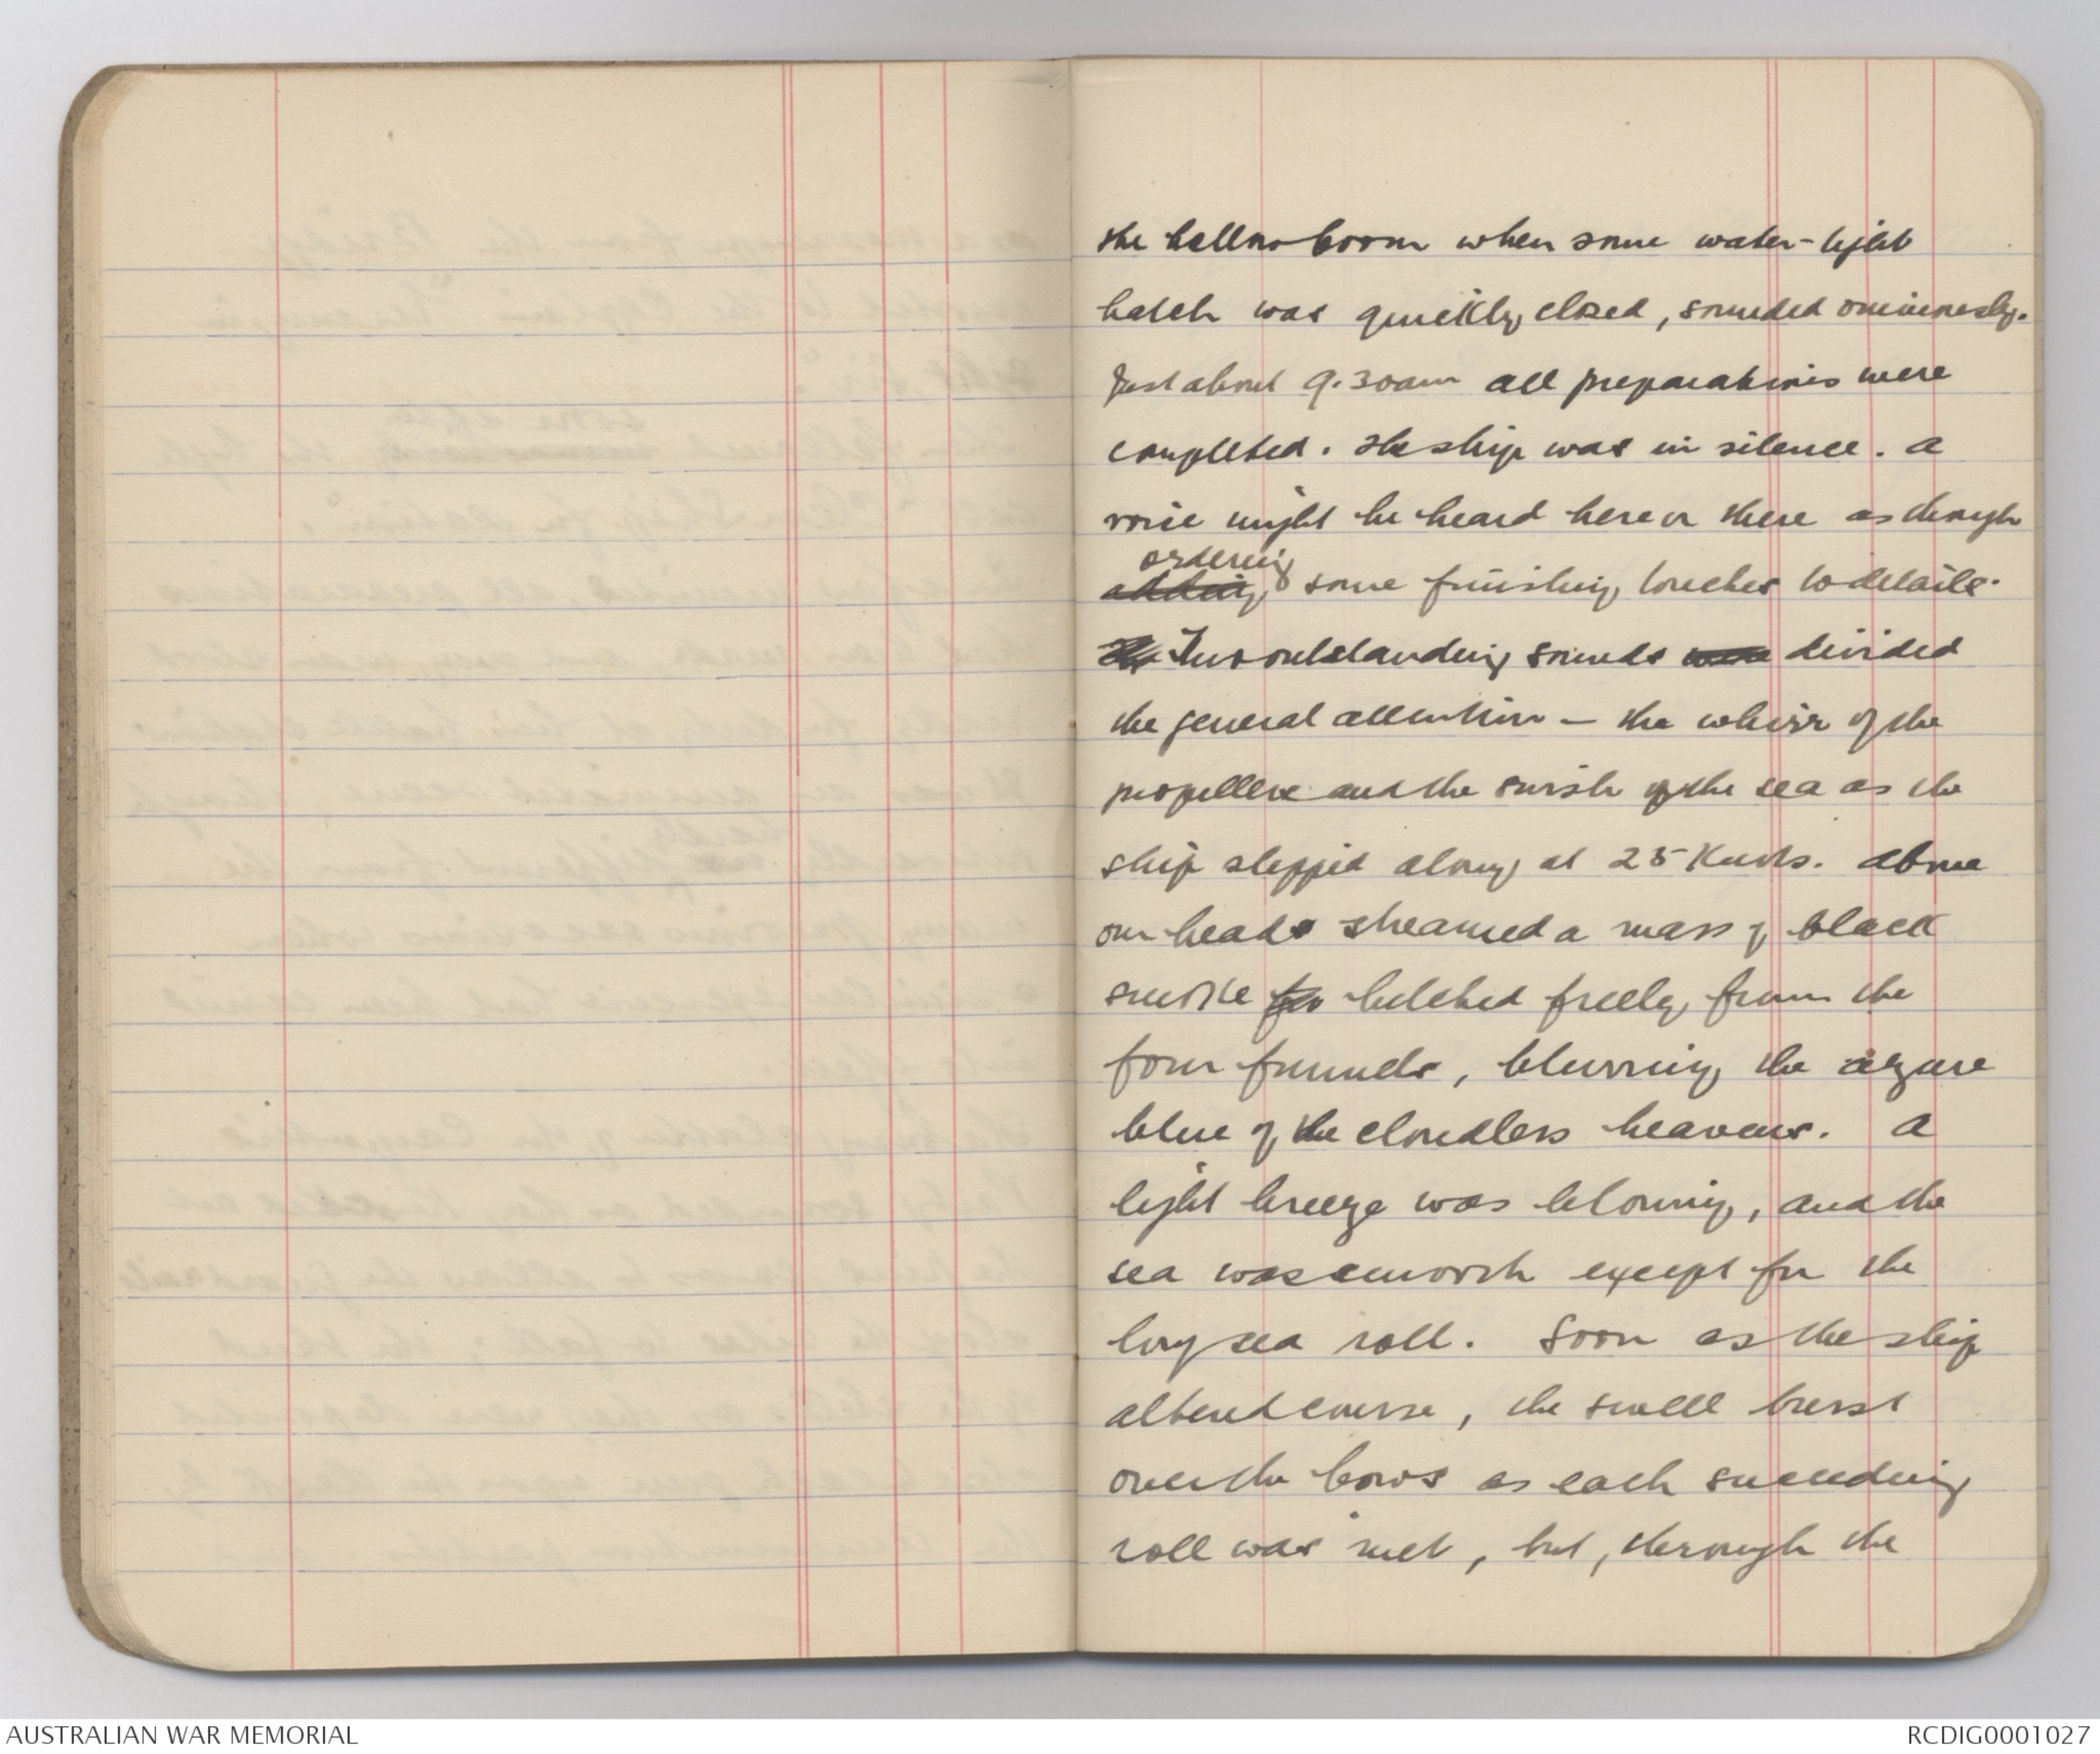 the hollow boom when some water-tight
hatch was quickly closed, sounded ominously.
Just about 9.30am all preparations were
completed. The ship was in silence. A
voice might be heard here or there as though
ordering
adding some finishing touches to details.
Two outstanding sounds were divided
the general attention — the whirr of the
propellers and the swish of the sea as the
ship stepped along at 25 Knots. Above
our heads streamed a mass of black
smoke belched freely from the
four funnels, blurring the azure
blue of the cloudless heavens. A
light breeze was blowing, and the
sea was smooth except for the
long sea roll. Soon as the ship
altered course, the swell burst
over the bows as each succeeding
roll was met, but, through the
AUSTRALIAN WAR MEMORIAL
RCDIG0001027